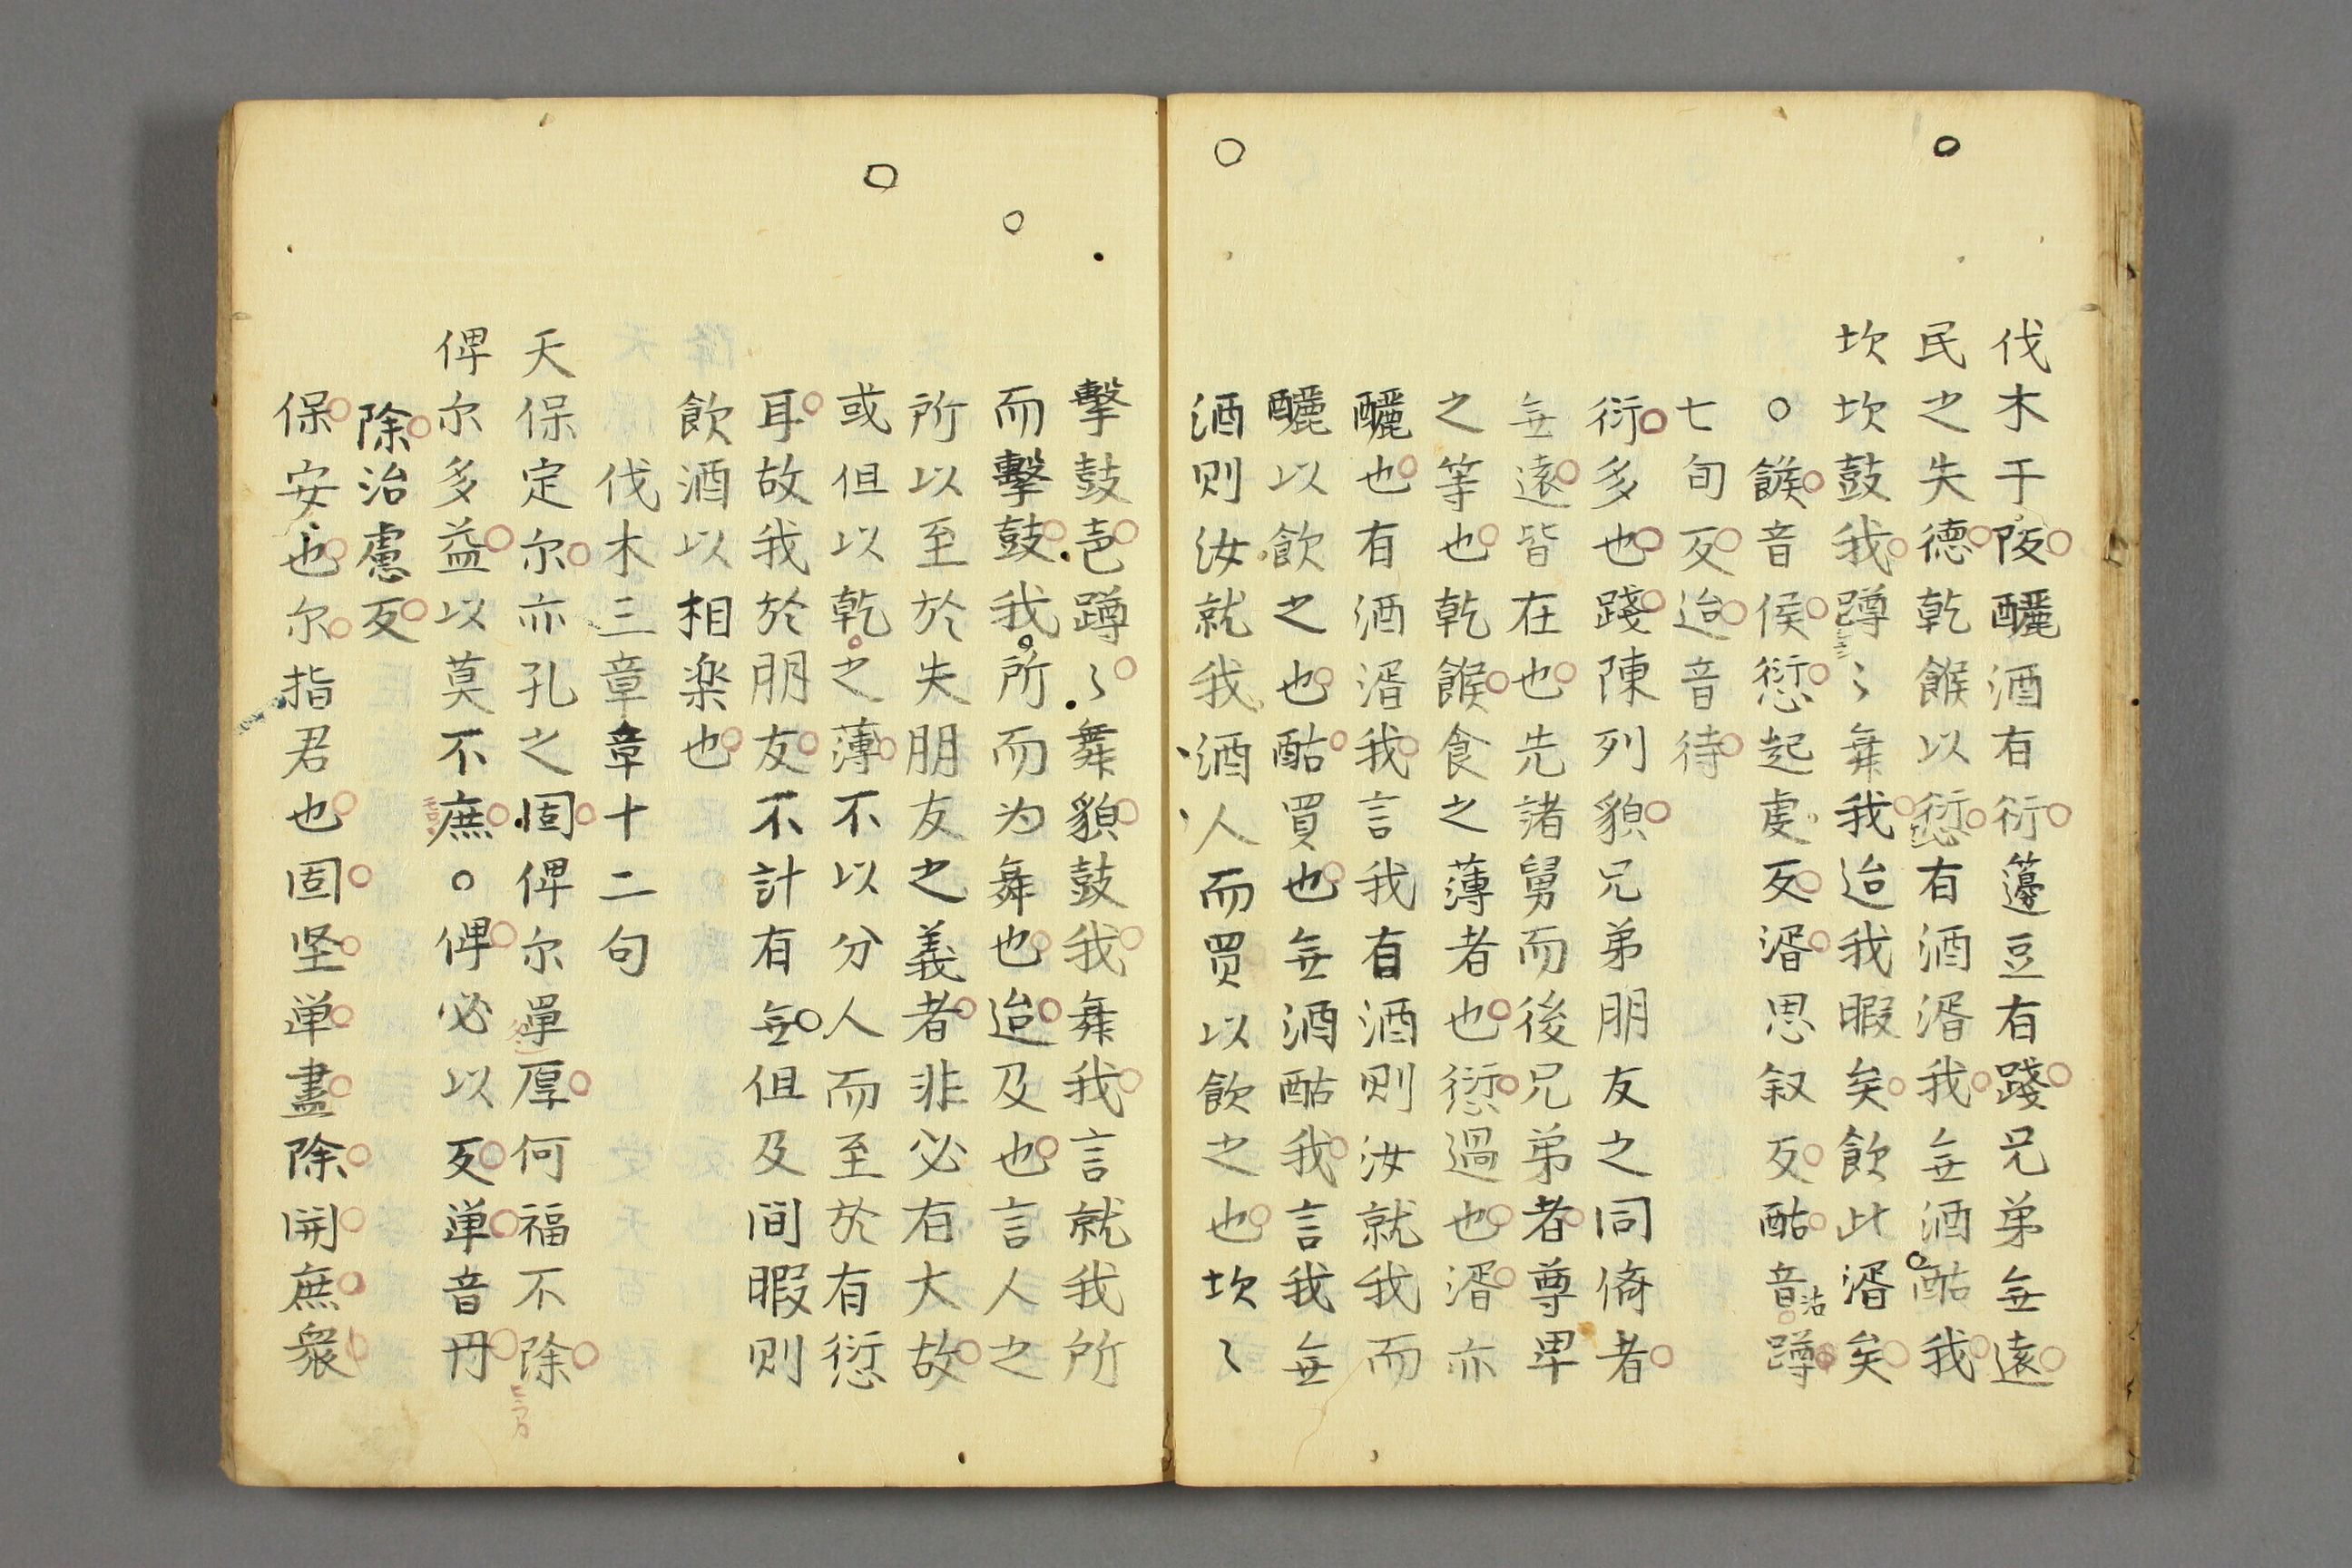 伐木于阪釃酒有衍籩豆有踐兄弟無遠
民之失德乾餱以愆有酒湑我無酒酤我
坎坎鼓我蹲〻舞我迨我暇矣飲此湑矣
○餱音侯愆起虔反湑思叙反酤音沽蹲
七旬反迨音待
衍多也踐陳列貌兄弟朋友之同儕者
無遠皆在也先諸舅而後兄弟者尊卑
之等也乾餱食之薄者也愆過也湑亦
釃也有酒湑我言我有酒則汝就我而
釃以飲之也酤買也無酒酤我言我無
酒則汝就我酒人而買以飲之也坎〻
擊鼓声蹲〻舞貌鼓我舞我言就我所
而擊鼓我所而为舞也迨及也言人之
所以至於失朋友之義者非必有大故
或但以乾之薄不以分人而至於有愆
耳故我於朋友不計有無但及间暇則
飲酒以相楽也
伐木三章章十二句
天保定尔亦孔之固俾尔單厚何福不除
俾尔多益以莫不庶○俾必以反単音丹
除治慮反
保安也尔指君也固坚単盡除開庶衆